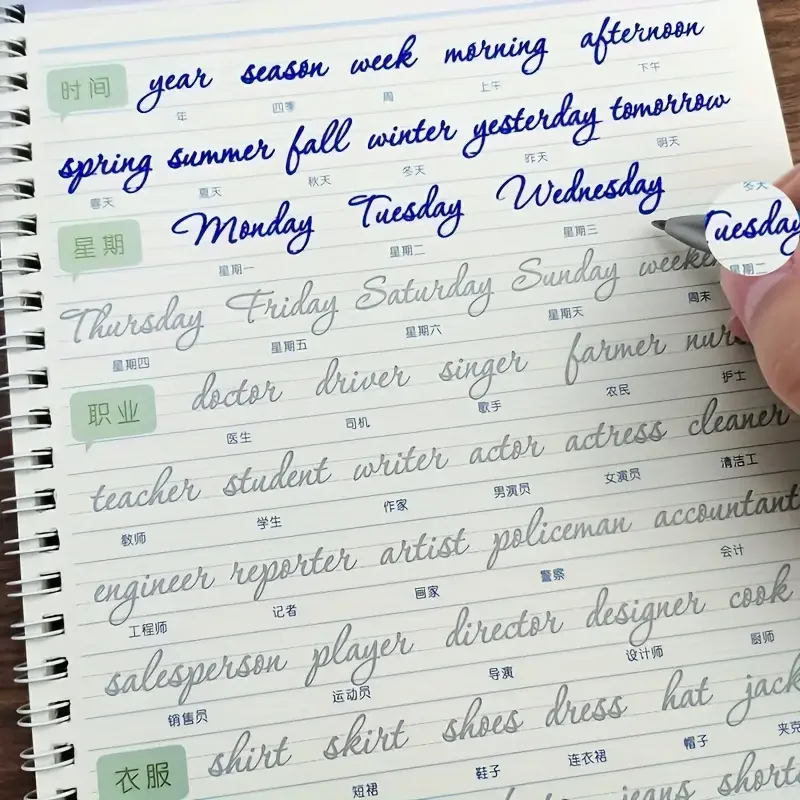 时间 year season week morning afternoon
年 四季 周 上午 下午
spring summer fall winter yesterday tomorrow
春天 夏天 秋天 冬天 昨天 明天
星期 Monday Tuesday Wednesday
星期一 星期二 星期三
冬天
Tuesday
星期二
Thursday Friday Saturday Sunday
星期四 星期五 星期六 星期天 周末
职业 doctor driver singer farmer
医生 司机 歌手 农民 护士
teacher student writer actor actress cleaner
教师 学生 作家 男演员 女演员 清洁工
engineer reporter artist policeman accountant
工程师 记者 画家 警察 会计
salesperson player director designer cook
销售员 运动员 导演 设计师 厨师
衣服 shirt skirt shoes dress hat jack
短裙 鞋子 连衣裙 帽子 夹克
jeans shorts